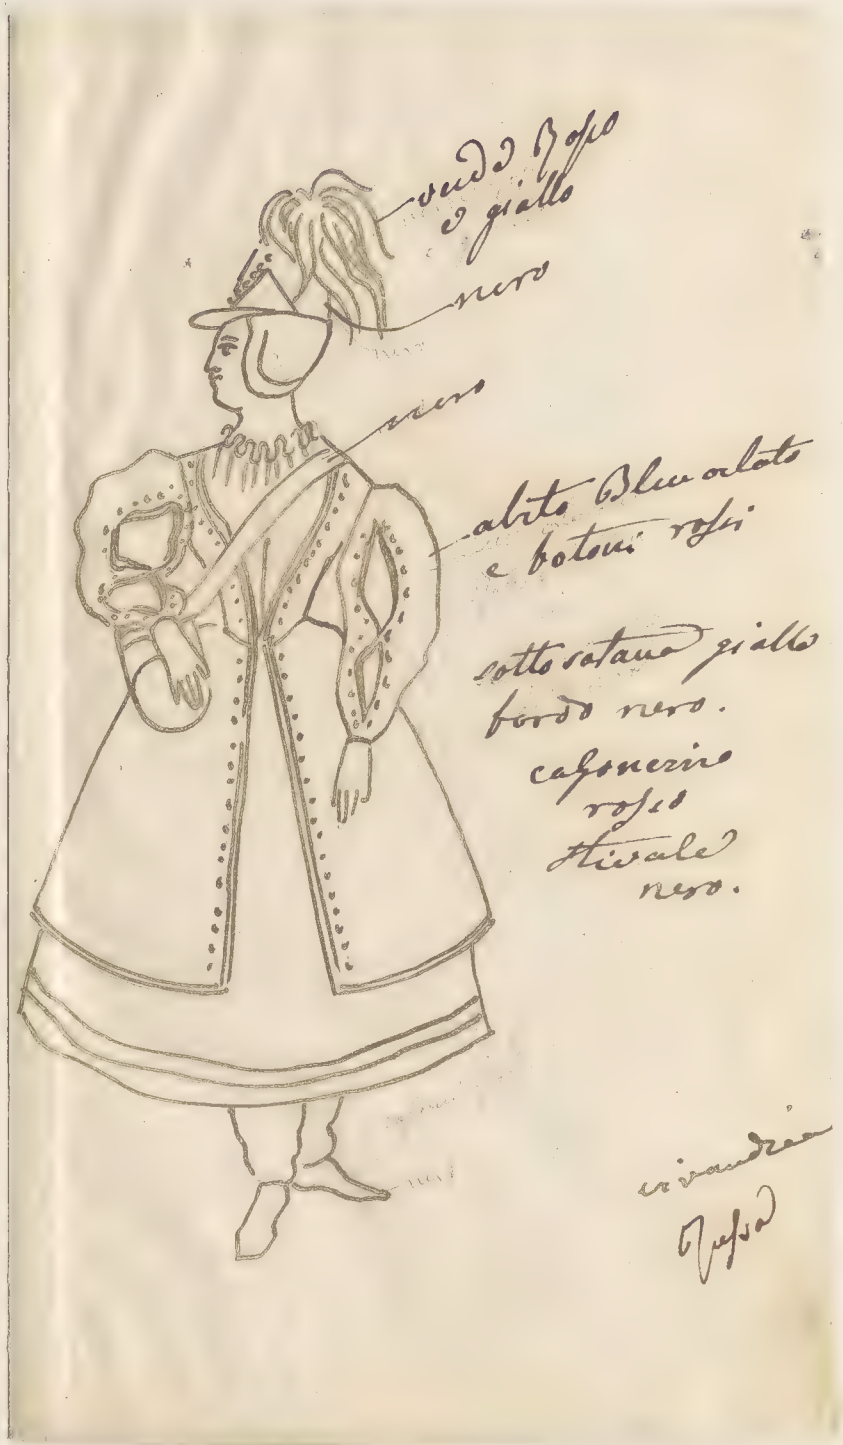 verde Rosso
e giallo
nero
nero
abito Bleu orlato
e botoni rossi
sottosatana giallo
bordo nero.
calsoncino
rosso
stivale
nero.
nero
vivandiea
Russa